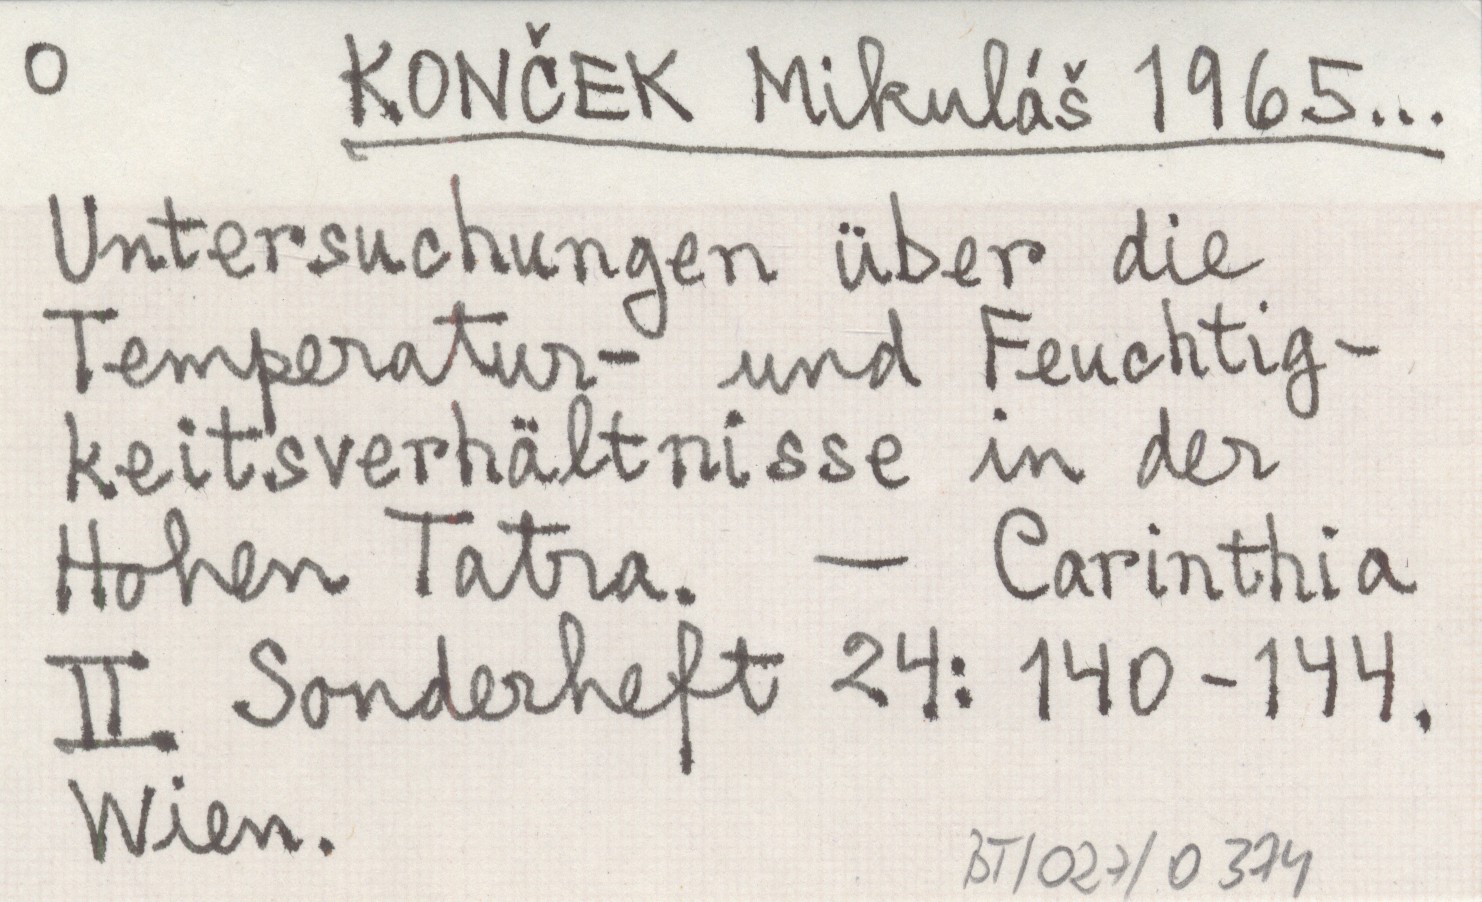 O KONČEK Mikuláš 1965...
Untersuchungen über die
Temperatur- und Feuchtig-
keitsverhältnisse in der
Hohen Tatra. — Carinthia
II. Sonderheft 24: 140-144.
Wien.
BT/027/0374